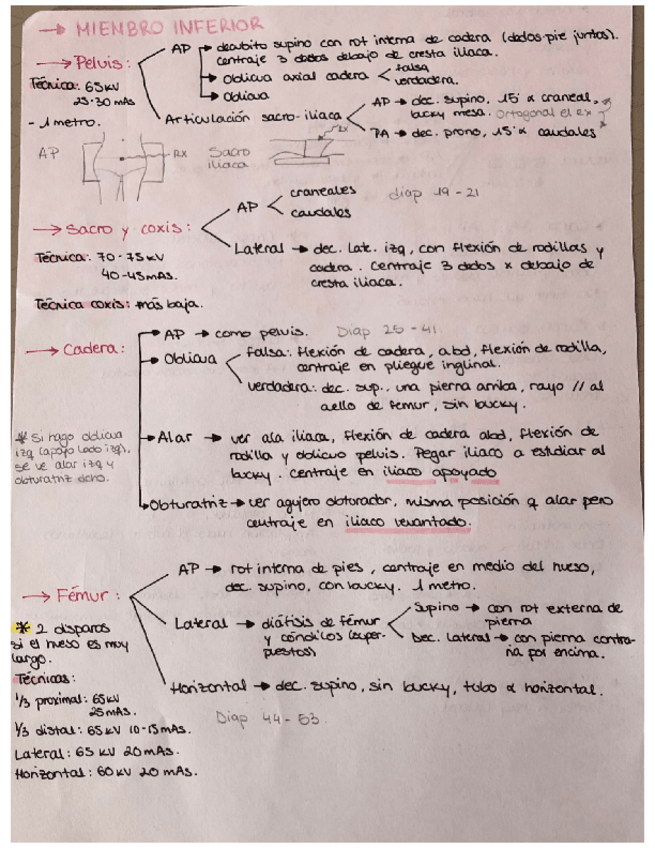 → MIEMBRO INFERIOR
→ Pelvis:
Técnica: 65kV
25-30 mAs
- 1 metro.
AP → decúbito supino con rot interna de cadera (dedos-pie juntos).
centraje 3 dedos debajo de cresta iliaca.
→ Oblicua axial cadera < falsa
verdadera.
→ Oblicua
Articulación sacro-iliaca
AP → dec. supino, 15° α craneal,
bucky mesa. Ortogonal el Rx
PA → dec. prono, 15° α caudales
AP
RX
Sacro
iliaca
Rx
→ Sacro y coxis:
AP < craneales
caudales
diap 19-21
Lateral → dec. Late. izq, con flexión de rodillas y
cadera. Centraje 3 dedos x debajo de
cresta iliaca.
Técnica: 70-75kV
40-45mAs.
Técnica coxis: más baja.
→ Cadera:
AP → como pelvis. Diap 25-41.
Oblicua
falsa: flexión de cadera, abd, flexión de rodilla,
centraje en pliegue inglinal.
verdadera: dec. sup., una pierna arriba, rayo // al
cuello de femur, sin bucky.
* Si hago oblicua
izq (apoyo lado izq),
se ve alar izq y
obturatriz dcho.
→ Alar → ver ala iliaca, flexión de cadera abd, flexión de
rodilla y oblicuo pelvis. Pegar iliaco a estudiar al
bucky. Centraje en iliaco apoyado
→ Obturatriz → ver agujero obturador, misma posición q alar pero
centraje en iliaco levantado.
→ Fémur:
AP → rot interna de pies, centraje en medio del hueso,
dec. supino, con bucky. 1 metro.
Lateral → diáfisis de fémur
y cóndilos (super-
puestos)
Supino → con rot externa de
pierna
Dec. Lateral → con pierna contra-
ria por encima.
Horizontal → dec. supino, sin bucky, tubo α horizontal.
Diap 44-53
* 2 disparos
si el hueso es muy
largo.
Técnicas:
1/3 proximal: 65kV
25mAs.
1/3 distal: 65kV 10-15mAs.
Lateral: 65 kV 20mAs.
Horizontal: 60kV 20 mAs.